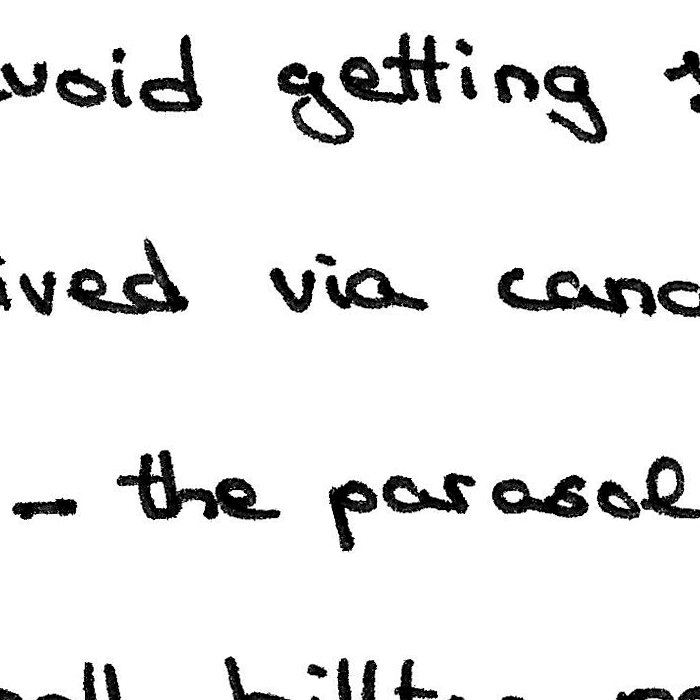 void getting
ived via cano
- the parasol